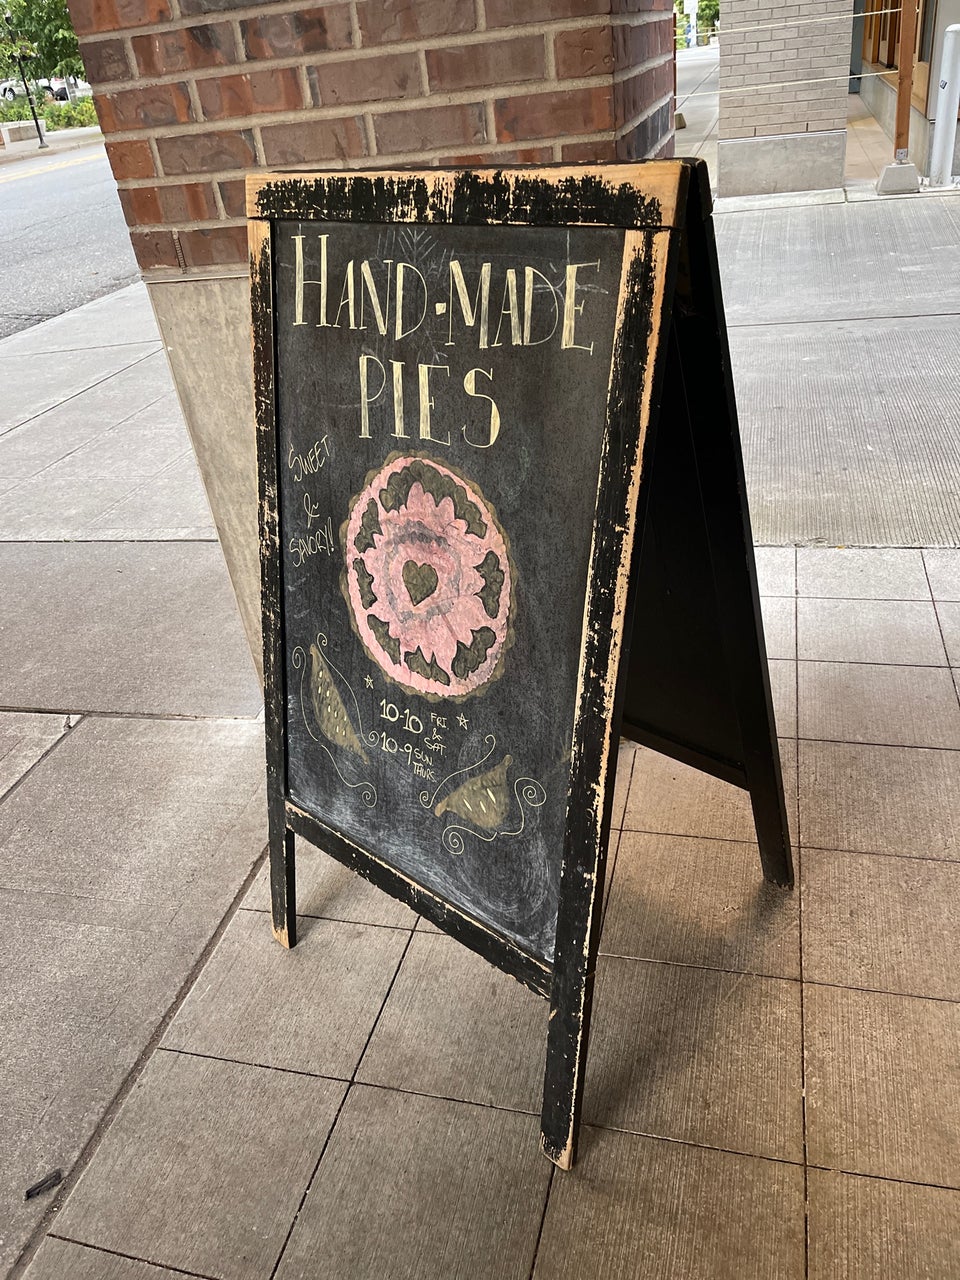 HAND-MADE
PIES
SWEET
&
SAVORY!!
10-10 FRI & SAT
10-9 SUN THURS